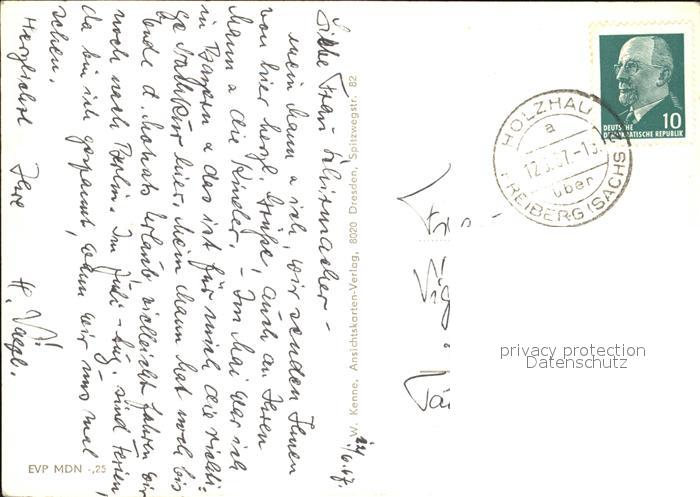 Liebe Frau Schirmacher –
mein Mann u. ich, wir senden Ihnen
von hier herzl. Grüße, auch an Ihren
Mann u. die Kinder. – Im Mai war ich
in Bayern u. das ist für mich die richti-
ge Nachkur hier. Mein Mann hat noch bis
Ende d. Monats Urlaub vielleicht fahren wir
noch nach Berlin. Im Juli – Aug. sind Ferien,
da bin ich gespannt, wann wir uns mal
sehen.
Herzlichst Ihre H.
12/6.67.
W. Kenne, Ansichtskarten-Verlag, 8020 Dresden, Spitzwegstr. 82
EVP MDN -,25
HOLZHAU
a
über
FREIBERG (SACHS
10
DEUTSCHE
DEMOKRATISCHE REPUBLIK
privacy protection
Datenschutz